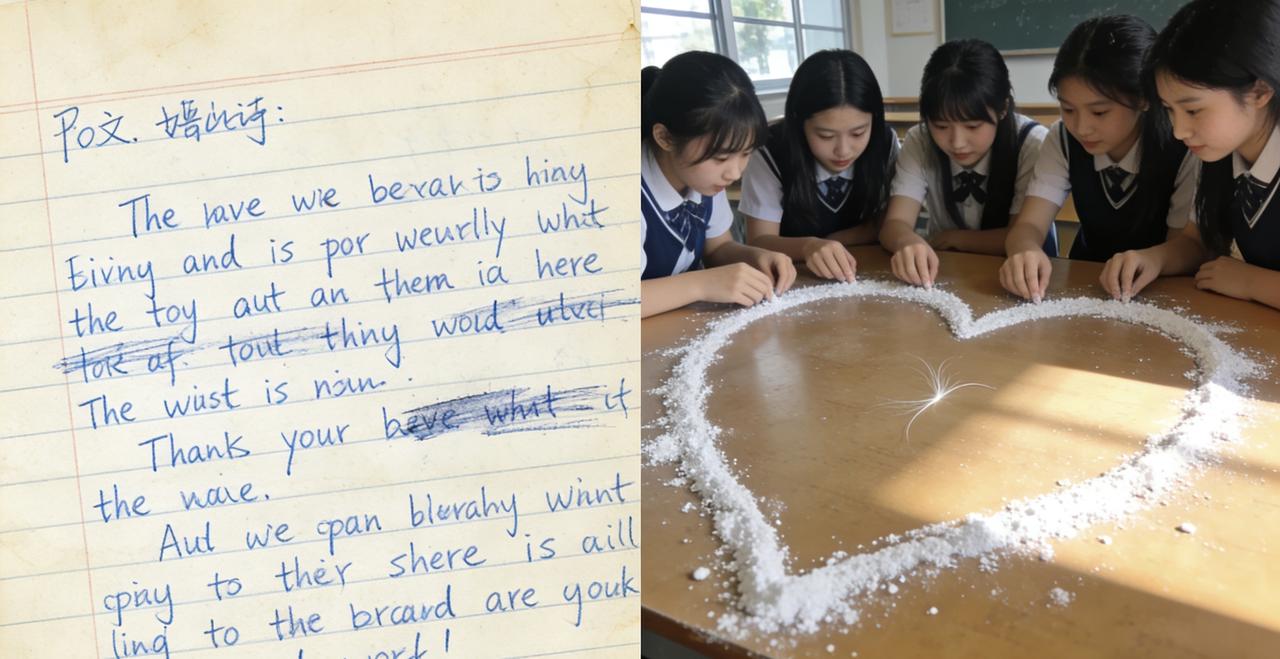 Po文. 诗:
The rave wie bevar is hiny
Eiviny and is por weurlly whit
the toy aut an them ia here
af. tout thiny wold
The wiist is
Thank your beve whut it
the
Aul we cpan blerahy wint
cpiay to ther shere is aill
ling to the brcard are youk